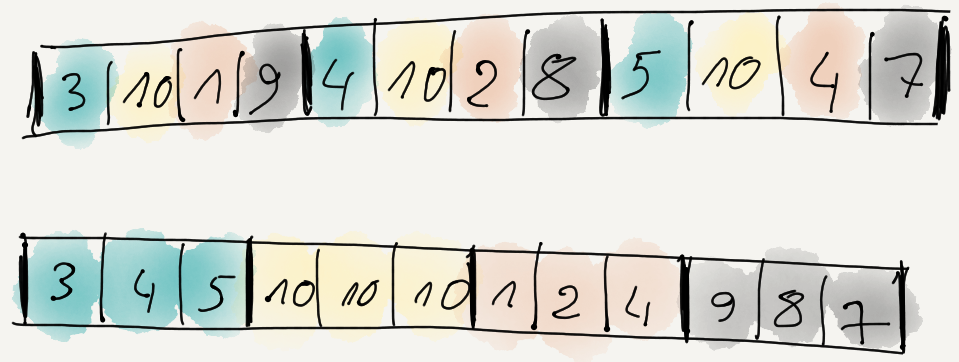 3 10 1 9 4 10 2 8 5 10 4 7
3 4 5 10 10 10 1 2 4 9 8 7